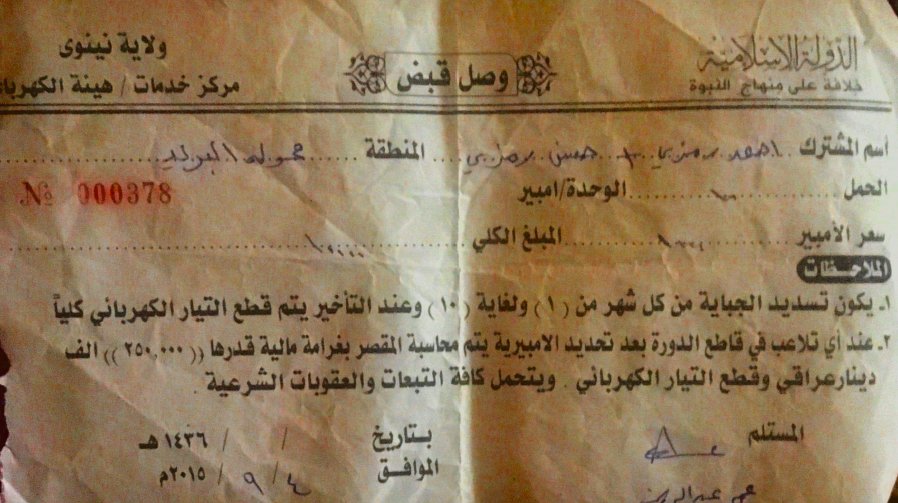 الدولة الاسلامية
خلافة على منهاج النبوة
وصل قبض
ولاية نينوى
مركز خدمات / هيئة الكهرباء
أسم المشترك احمد رمزي حسن رمزي المنطقة
الحمل الوحدة/امبير
№ 000378
سعر الامبير المبلغ الكلي
الملاحظات
١ـ يكون تسديد الجباية من كل شهر من (١) ولغاية (١٠) وعند التأخير يتم قطع التيار الكهربائي كلياً
٢ـ عند أي تلاعب في قاطع الدورة بعد تحديد الامبيرية يتم محاسبة المقصر بغرامة مالية قدرها ((٢٥٠,٠٠٠)) الف
دينار عراقي وقطع التيار الكهربائي . ويتحمل كافة التبعات والعقوبات الشرعية .
المستلم
بتاريخ / / ١٤٣٦ هـ
الموافق ٤ / ٩ / ٢٠١٥م